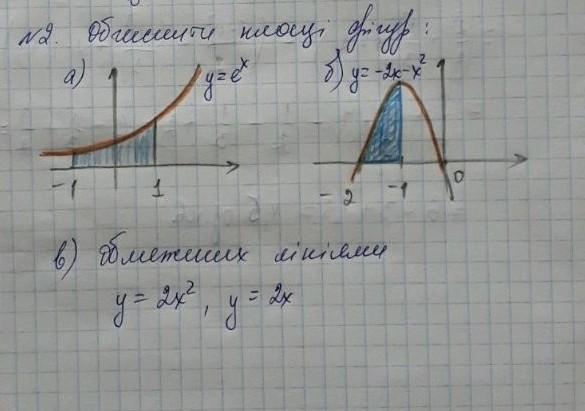 №2. Обчислити площі фігур:
а) y = eˣ
б) y = -2x - x²
-1 1
-2 -1 0
в) Обмежених лініями
y = 2x², y = 2x